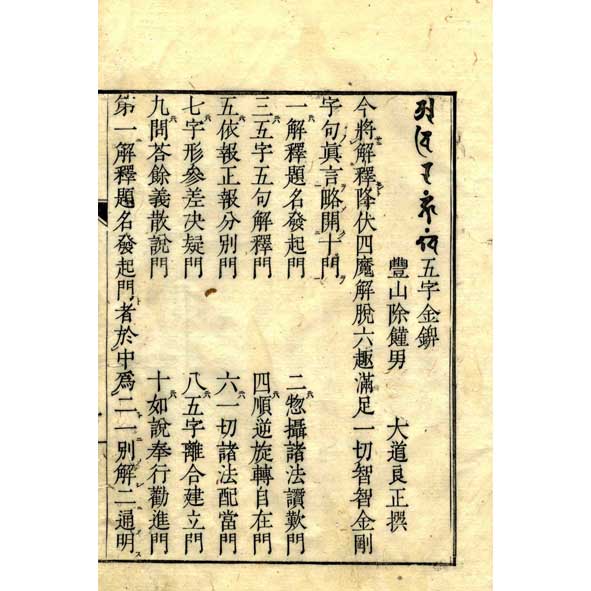 五字金錍
豐山除饉男 大道良正撰
今將解釋降伏四魔解脫六趣滿足一切智智金剛
字句眞言略開十門
一解釋題名發起門 二惣攝諸法讚歎門
三五字五句解釋門 四順逆旋轉自在門
五依報正報分別門 六一切諸法配當門
七字形參差决疑門 八五字離合建立門
九問答餘義散說門 十如說奉行勸進門
第一解釋題名發起門者於中爲二一別解二通明